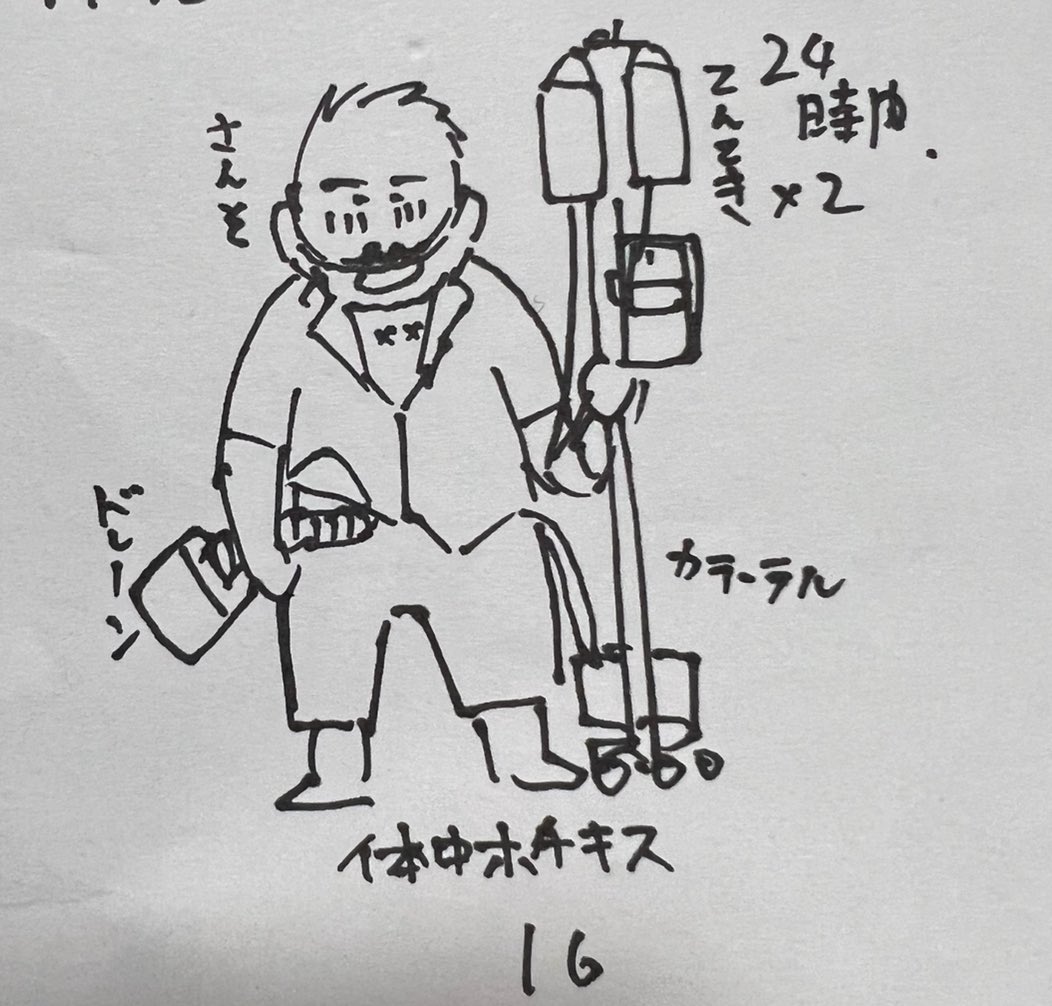 さんそ
てんてき
24
時間.
×2
ドレーン
カテーテル
体中ホチキス
16